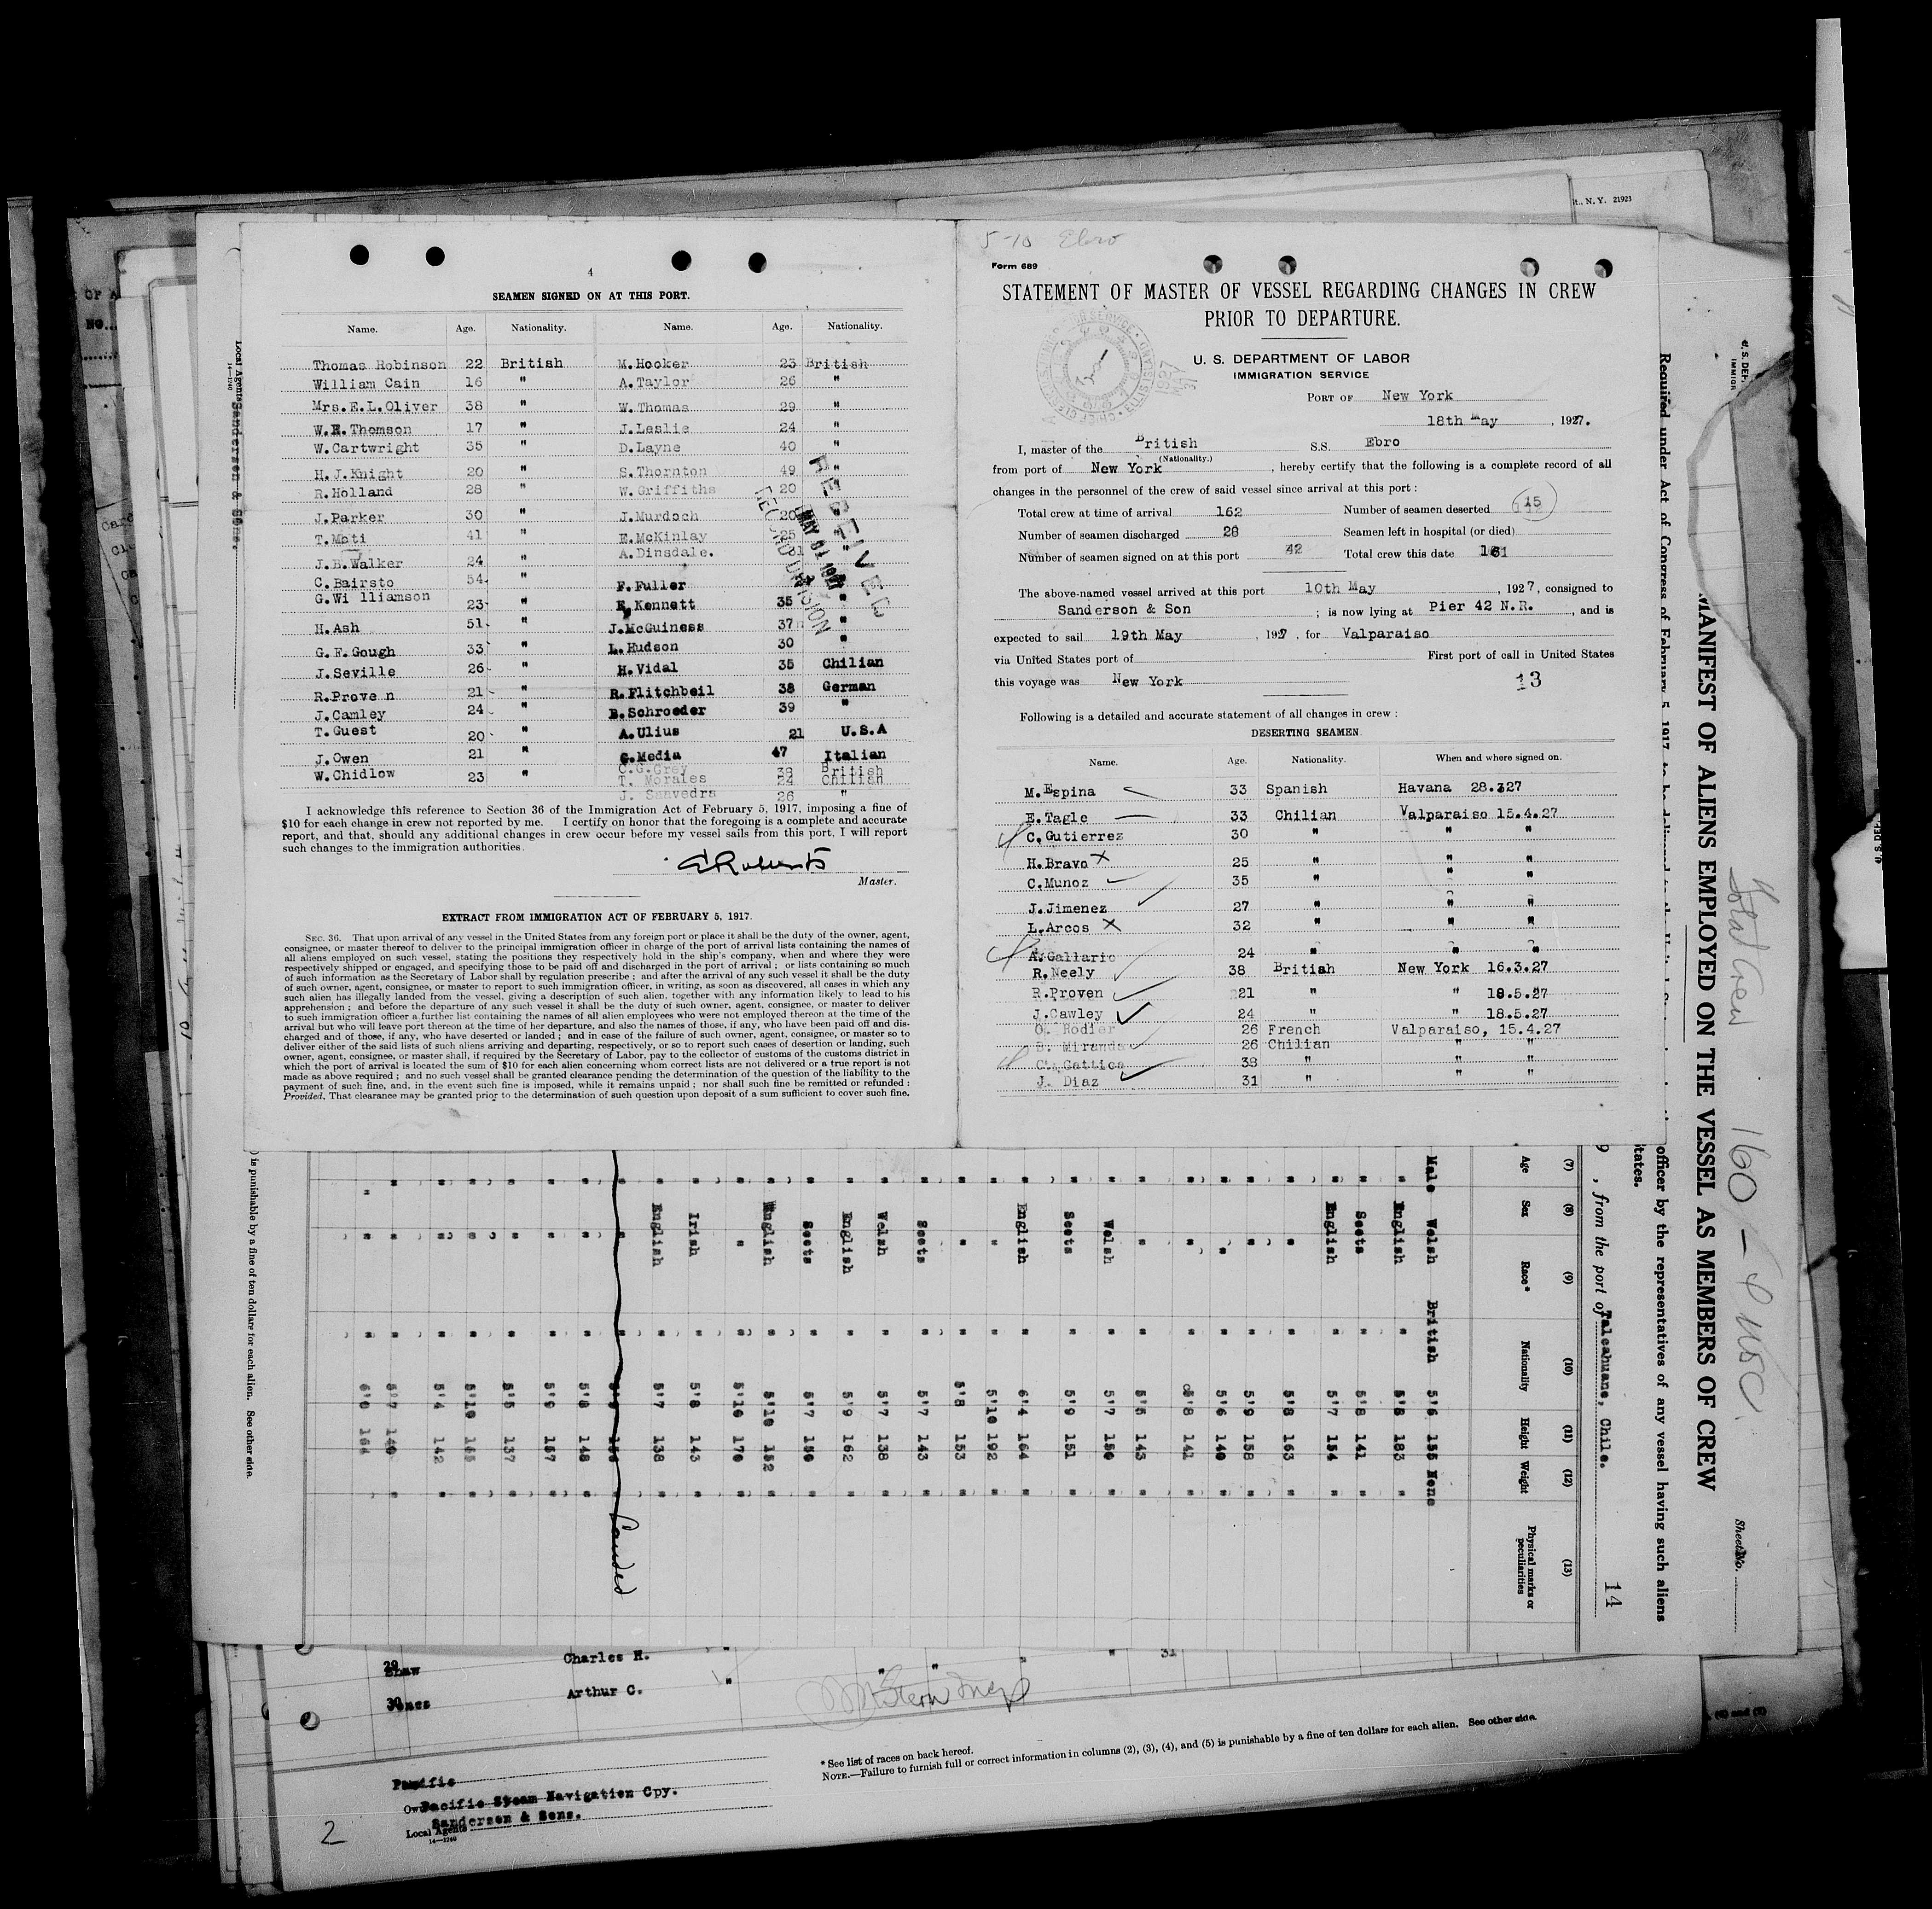 4
SEAMEN SIGNED ON AT THIS PORT.
Name. Age. Nationality. Name. Age. Nationality.
Thomas Robinson 22 British M.Hooker 23 British
William Cain 16 " A.Taylor 26 "
Mrs.E.L.Oliver 38 " W.Thomas 29 "
W.R.Thomson 17 " J.Leslie 24 "
W.Cartwright 35 " D.Layne 40 "
H.J.Knight 20 " S.Thornton 49 "
R.Holland 28 " W.Griffiths 20
J.Parker 30 " J.Murdoch 20
T.Moti 41 " E.McKinlay 25
J.B.Walker 24 " A.Dinsdale. 31
C.Bairsto 54 " F.Fuller
G.Wi lliamson 23 " E.Kennett 35 "
H.Ash 51 " J.McGuiness 37 "
G.F.Gough 33 " L.Hudson 30 "
J.Seville 26 " H.Vidal 35 Chilian
R.Prove n 21 " R.Flitchbeil 38 German
J.Camley 24 " B.Schroeder 39 "
T.Guest 20 " A.Ulius 21 U.S.A
J.Owen 21 " G.Media 47 Italian
W.Chidlow 23 " C.G.Grey 39 British
T. Morales 24 Chilian
J. Saavedra 26 "
RECEIVED
MAY 31 1927
RECORD DIVISION
I acknowledge this reference to Section 36 of the Immigration Act of February 5, 1917, imposing a fine of
$10 for each change in crew not reported by me. I certify on honor that the foregoing is a complete and accurate
report, and that, should any additional changes in crew occur before my vessel sails from this port, I will report
such changes to the immigration authorities.
E Roberts
Master.
EXTRACT FROM IMMIGRATION ACT OF FEBRUARY 5, 1917.
SEC. 36. That upon arrival of any vessel in the United States from any foreign port or place it shall be the duty of the owner, agent,
consignee, or master thereof to deliver to the principal immigration officer in charge of the port of arrival lists containing the names of
all aliens employed on such vessel, stating the positions they respectively hold in the ship's company, when and where they were
respectively shipped or engaged, and specifying those to be paid off and discharged in the port of arrival ; or lists containing so much
of such information as the Secretary of Labor shall by regulation prescribe ; and after the arrival of any such vessel it shall be the duty
of such owner, agent, consignee, or master to report to such immigration officer, in writing, as soon as discovered, all cases in which any
such alien has illegally landed from the vessel, giving a description of such alien, together with any information likely to lead to his
apprehension ; and before the departure of any such vessel it shall be the duty of such owner, agent, consignee, or master to deliver
to such immigration officer a further list containing the names of all alien employees who were not employed thereon at the time of the
arrival but who will leave port thereon at the time of her departure, and also the names of those, if any, who have been paid off and dis-
charged and of those, if any, who have deserted or landed ; and in case of the failure of such owner, agent, consignee, or master so to
deliver either of the said lists of such aliens arriving and departing, respectively, or so to report such cases of desertion or landing, such
owner, agent, consignee, or master shall, if required by the Secretary of Labor, pay to the collector of customs of the customs district in
which the port of arrival is located the sum of $10 for each alien concerning whom correct lists are not delivered or a true report is not
made as above required ; and no such vessel shall be granted clearance pending the determination of the question of the liability to the
payment of such fine, and, in the event such fine is imposed, while it remains unpaid ; nor shall such fine be remitted or refunded :
Provided, That clearance may be granted prior to the determination of such question upon deposit of a sum sufficient to cover such fine.
5-10 Ebro
Form 689
STATEMENT OF MASTER OF VESSEL REGARDING CHANGES IN CREW
PRIOR TO DEPARTURE.
U. S. DEPARTMENT OF LABOR
IMMIGRATION SERVICE
PORT OF New York
18th May , 1927.
I, master of the British S.S. Ebro
(Nationality.)
from port of New York , hereby certify that the following is a complete record of all
changes in the personnel of the crew of said vessel since arrival at this port :
Total crew at time of arrival 162 Number of seamen deserted 15
Number of seamen discharged 28 Seamen left in hospital (or died)
Number of seamen signed on at this port 42 Total crew this date 161
The above-named vessel arrived at this port 10th May , 1927, consigned to
Sanderson & Son ; is now lying at Pier 42 N.R. , and is
expected to sail 19th May , 1927 , for Valparaiso
via United States port of First port of call in United States
this voyage was New York
13
Following is a detailed and accurate statement of all changes in crew :
DESERTING SEAMEN
Name. Age. Nationality. When and where signed on.
M.Espina 33 Spanish Havana 28.3.27
E.Tagle 33 Chilian Valparaiso 15.4.27
C.Gutierrez 30 " " "
H.Bravo 25 " " "
C.Munoz 35 " " "
J.Jimenez 27 " " "
L.Arcos 32 " " "
A.Gallaric 24 " " "
R.Neely 38 British New York 16.3.27
R.Proven 21 " " 18.5.27
J.Cawley 24 " " 18.5.27
O. Rodier 26 French Valparaiso, 15.4.27
D. Miranda 26 Chilian " "
C. Gattica 38 " " "
J. Diaz 31 " " "
MANIFEST OF ALIENS EMPLOYED ON THE VESSEL AS MEMBERS OF CREW
Required under Act of Congress of February 5, 1917, to be delivered
officer by the representatives of any vessel having such aliens
tates.
9 , from the port of Talcahuano, Chile.
14
Sheet No.
160
(7) (8) (9) (10) (11) (12) (13)
Age Sex Race* Nationality Height Weight Physical marks or peculiarities
Male Welsh British 5'6 155 None
" English " 5'8 183 "
" Scots " 5'8 141 "
" English " 5'7 154 "
" " " 5'8 163 "
" " " 5'9 158 "
" " " 5'6 140 "
" " " 5'8 141 "
" " " 5'5 143 "
" Welsh " 5'7 150 "
" Scots " 5'9 151 "
" English " 6'4 164 "
" " " 5'10 192 "
" " " 5'8 153 "
" Scots " 5'7 143 "
" Welsh " 5'7 138 "
" English " 5'9 162 "
" Scots " 5'7 150 "
" English " 5'10 152 "
" " " 5'10 170 "
" Irish " 5'8 143 "
" English " 5'7 138 "
Landed
" " " 5'8 148 "
" " " 5'9 157 "
" " " 5'5 137 "
" " " 5'10 165 "
" " " 5'4 142 "
" " " 5'7 140 "
" " " 6'0 164
) is punishable by a fine of ten dollars for each alien. See other side.
Local Agents Sanderson & Sons.
14—1240
29 Shaw Charles H. " " " " " 31
30 Jones Arthur C. "
* See list of races on back hereof.
NOTE.—Failure to furnish full or correct information in columns (2), (3), (4), and (5) is punishable by a fine of ten dollars for each alien. See other side.
Pacific
Pacific Steam Navigation Cpy.
Local Agents Sanderson & Sons.
14—1240
2
It., N. Y. 21923